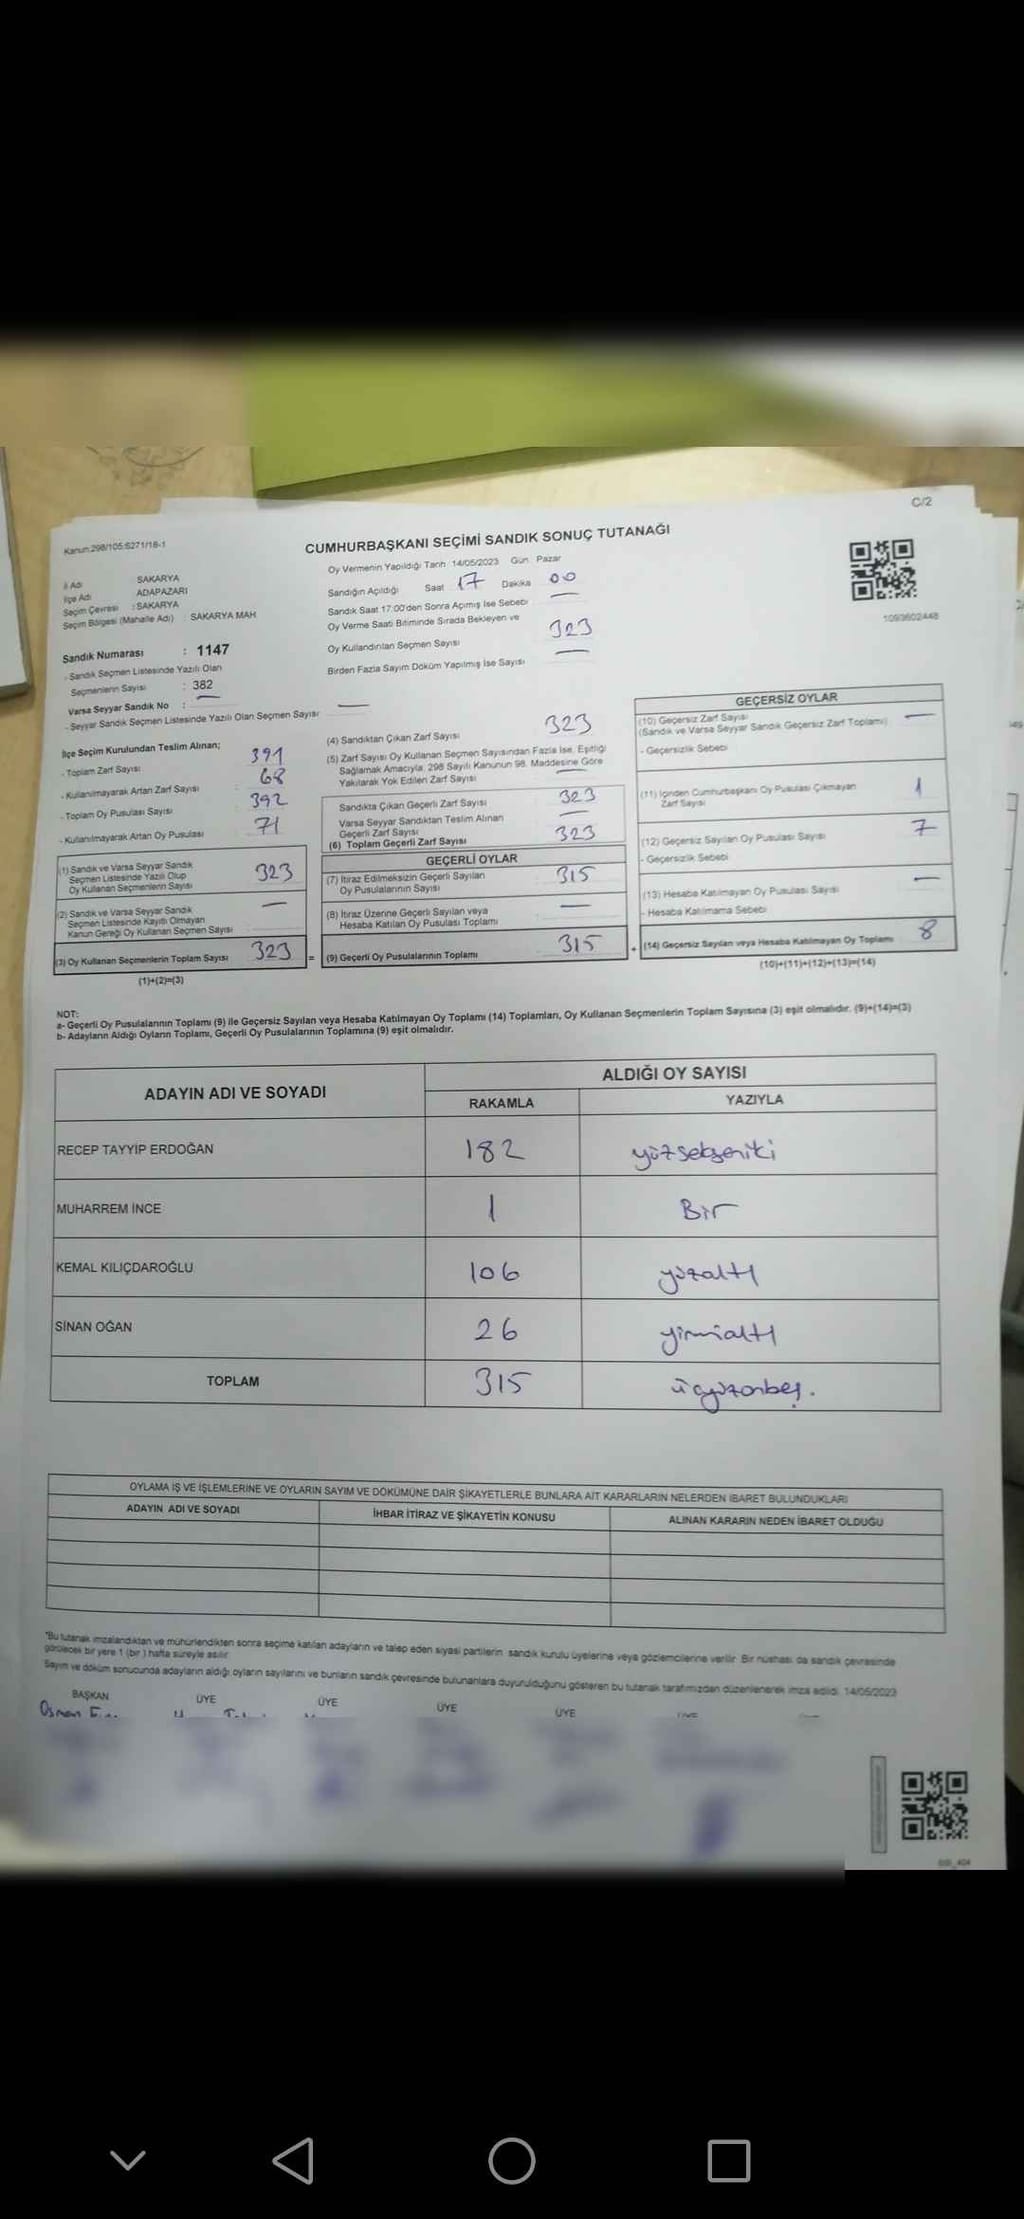 C/2
Kanun:298/105:6271/18-1
CUMHURBAŞKANI SEÇİMİ SANDIK SONUÇ TUTANAĞI
İl Adı SAKARYA
İlçe Adı ADAPAZARI
Seçim Çevresi : SAKARYA
Seçim Bölgesi (Mahalle Adı) : SAKARYA MAH
Sandık Numarası : 1147
- Sandık Seçmen Listesinde Yazılı Olan
Seçmenlerin Sayısı : 382
Varsa Seyyar Sandık No : —
- Seyyar Sandık Seçmen Listesinde Yazılı Olan Seçmen Sayısı —
Oy Vermenin Yapıldığı Tarih 14/05/2023 Gün Pazar
Sandığın Açıldığı Saat 17 Dakika 00
Sandık Saat 17:00'den Sonra Açımış İse Sebebi —
Oy Verme Saati Bitiminde Sırada Bekleyen ve
Oy Kullandırılan Seçmen Sayısı 323
Birden Fazla Sayım Döküm Yapılmış İse Sayısı —
1093602448
İlçe Seçim Kurulundan Teslim Alınan;
- Toplam Zarf Sayısı 391
- Kullanılmayarak Artan Zarf Sayısı : 68
- Toplam Oy Pusulası Sayısı : 392
- Kullanılmayarak Artan Oy Pusulası 71
(1) Sandık ve Varsa Seyyar Sandık
Seçmen Listesinde Yazılı Olup
Oy Kullanan Seçmenlerin Sayısı 323
(2) Sandık ve Varsa Seyyar Sandık
Seçmen Listesinde Kayıtlı Olmayan
Kanun Gereği Oy Kullanan Seçmen Sayısı —
(3) Oy Kullanan Seçmenlerin Toplam Sayısı 323 =
(1)+(2)=(3)
(4) Sandıktan Çıkan Zarf Sayısı 323
(5) Zarf Sayısı Oy Kullanan Seçmen Sayısından Fazla İse, Eşitliği
Sağlamak Amacıyla, 298 Sayılı Kanunun 98. Maddesine Göre
Yakılarak Yok Edilen Zarf Sayısı —
Sandıkta Çıkan Geçerli Zarf Sayısı 323
Varsa Seyyar Sandıktan Teslim Alınan
Geçerli Zarf Sayısı —
(6) Toplam Geçerli Zarf Sayısı 323
GEÇERLİ OYLAR
(7) İtiraz Edilmeksizin Geçerli Sayılan
Oy Pusulalarının Sayısı 315
(8) İtiraz Üzerine Geçerli Sayılan veya
Hesaba Katılan Oy Pusulası Toplamı —
(9) Geçerli Oy Pusulalarının Toplamı 315 +
GEÇERSİZ OYLAR
(10) Geçersiz Zarf Sayısı
(Sandık ve Varsa Seyyar Sandık Geçersiz Zarf Toplamı) —
- Geçersizlik Sebebi
(11) İçinden Cumhurbaşkanı Oy Pusulası Çıkmayan
Zarf Sayısı 1
(12) Geçersiz Sayılan Oy Pusulası Sayısı 7
- Geçersizlik Sebebi
(13) Hesaba Katılmayan Oy Pusulası Sayısı —
- Hesaba Katılmama Sebebi
(14) Geçersiz Sayılan veya Hesaba Katılmayan Oy Toplamı 8
(10)+(11)+(12)+(13)=(14)
NOT:
a- Geçerli Oy Pusulalarının Toplamı (9) ile Geçersiz Sayılan veya Hesaba Katılmayan Oy Toplamı (14) Toplamları, Oy Kullanan Seçmenlerin Toplam Sayısına (3) eşit olmalıdır. (9)+(14)=(3)
b- Adayların Aldığı Oyların Toplamı, Geçerli Oy Pusulalarının Toplamına (9) eşit olmalıdır.
ADAYIN ADI VE SOYADI ALDIĞI OY SAYISI
RAKAMLA YAZIYLA
RECEP TAYYİP ERDOĞAN 182 yüzsekseniki
MUHARREM İNCE 1 Bir
KEMAL KILIÇDAROĞLU 106 yüzaltı
SİNAN OĞAN 26 yirmialtı
TOPLAM 315 üçyüzonbeş.
OYLAMA İŞ VE İŞLEMLERİNE VE OYLARIN SAYIM VE DÖKÜMÜNE DAİR ŞİKAYETLERLE BUNLARA AİT KARARLARIN NELERDEN İBARET BULUNDUKLARI
ADAYIN ADI VE SOYADI İHBAR İTİRAZ VE ŞİKAYETİN KONUSU ALINAN KARARIN NEDEN İBARET OLDUĞU
*Bu tutanak imzalandıktan ve mühürlendikten sonra seçime katılan adayların ve talep eden siyasi partilerin sandık kurulu üyelerine veya gözlemcilerine verilir. Bir nüshası da sandık çevresinde
görülecek bir yere 1 (bir) hafta süreyle asılır
Sayım ve döküm sonucunda adayların aldığı oyların sayılarını ve bunların sandık çevresinde bulunanlara duyurulduğunu gösteren bu tutanak tarafımızdan düzenlenerek imza edildi. 14/05/2023
BAŞKAN ÜYE ÜYE ÜYE ÜYE
Osman